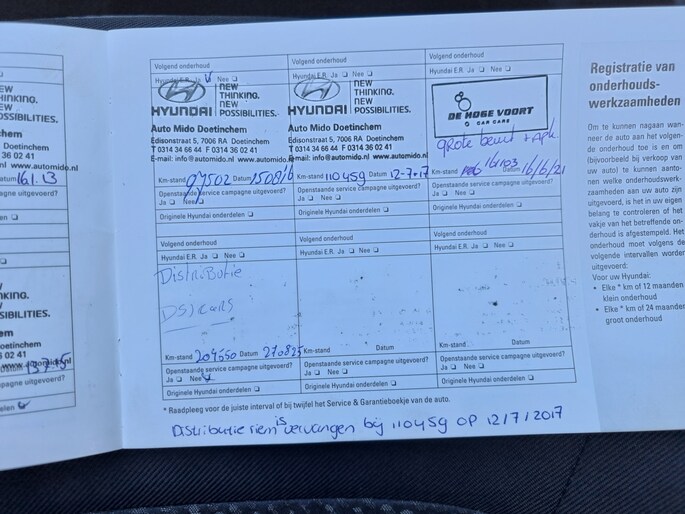 Volgend onderhoud
Hyundai E.R. Ja Nee
HYUNDAI
NEW
THINKING.
NEW
POSSIBILITIES.
Auto Mido Doetinchem
Edisonstraat 5, 7006 RA Doetinchem
T 0314 34 66 44 F 0314 36 02 41
E-mail: info@automido.nl www.automido.nl
Km-stand 97502 Datum 150816
Openstaande service campagne uitgevoerd?
Ja Nee
Originele Hyundai onderdelen
Volgend onderhoud
Hyundai E.R. Ja Nee
HYUNDAI
NEW
THINKING.
NEW
POSSIBILITIES.
Auto Mido Doetinchem
Edisonstraat 5, 7006 RA Doetinchem
T 0314 34 66 44 F 0314 36 02 41
E-mail: info@automido.nl www.automido.nl
Km-stand 110459 Datum 12-7-17
Openstaande service campagne uitgevoerd?
Ja Nee
Originele Hyundai onderdelen
Volgend onderhoud
Hyundai E.R. Ja Nee
DE HOGE VOORT
CAR CARE
grote beurt + apk
Km-stand 161103 Datum 16/6/21
Openstaande service campagne uitgevoerd?
Ja Nee
Originele Hyundai onderdelen
Volgend onderhoud
Hyundai E.R. Ja Nee
Distributie
DSJ cars
Km-stand 204550 Datum 270825
Openstaande service campagne uitgevoerd?
Ja Nee
Originele Hyundai onderdelen
Volgend onderhoud
Hyundai E.R. Ja Nee
Km-stand Datum
Openstaande service campagne uitgevoerd?
Ja Nee
Originele Hyundai onderdelen
Volgend onderhoud
Hyundai E.R. Ja Nee
Km-stand Datum
Openstaande service campagne uitgevoerd?
Ja Nee
Originele Hyundai onderdelen
* Raadpleeg voor de juiste interval of bij twijfel het Service & Garantieboekje van de auto.
Distributie riem is vervangen bij 110459 OP 12/7/2017
Registratie van
onderhouds-
werkzaamheden
Om te kunnen nagaan wan-
neer de auto aan het volgen-
de onderhoud toe is en om
(bijvoorbeeld bij verkoop van
uw auto) te kunnen aanto-
nen welke onderhoudswerk-
zaamheden aan uw auto zijn
uitgevoerd, is het in uw eigen
belang te controleren of het
vakje van het betreffende on-
derhoud is afgestempeld. Het
onderhoud moet volgens de
volgende intervallen worden
uitgevoerd:
Voor uw Hyundai:
• Elke * km of 12 maanden
klein onderhoud
• Elke * km of 24 maanden
groot onderhoud